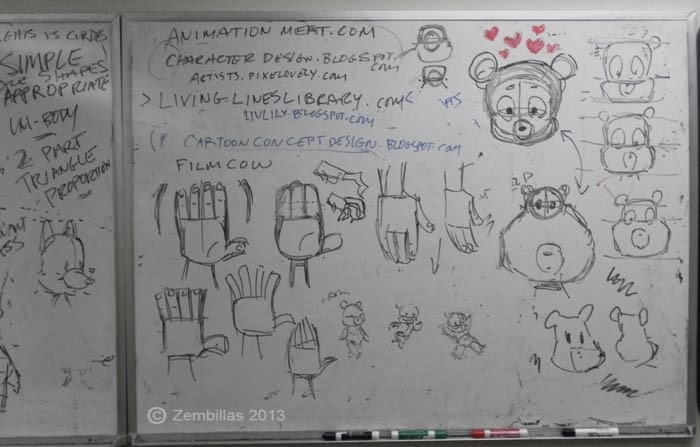 VS CURVES
SIMPLE
SHAPES
APPROPRIATE
UNI-BODY
2 PART
TRIANGLE
PROPORTION
ANIMATION MEAT.COM
CHARACTER DESIGN.BLOGSPOT.COM
ARTISTS.PIXELOVELY.COM
> LIVINGLINESLIBRARY.COM
LIVLILY.BLOGSPOT.COM
CARTOON CONCEPT DESIGN.BLOGSPOT.COM
FILMCOW
© Zembillas 2013